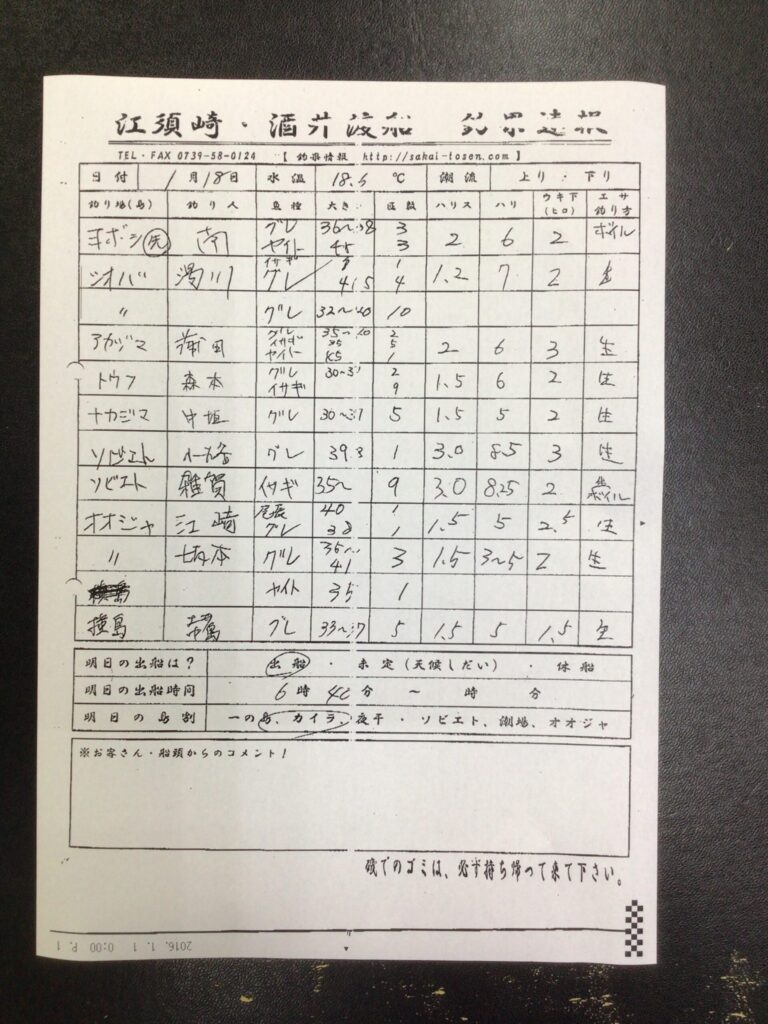 江須崎・酒井渡船 釣果速報
TEL・FAX 0739-58-0124 【 釣果情報 http://sakai-tosen.com 】
日付 1月18日 水温 18.5 ℃ 潮流 上り・下り
釣り場(島) 釣り人 魚種 大きさ 匹数 ハリス ハリ ウキ下(ヒロ) エサ釣り方
ヨボシ先 南 グレ 36〜38 3 2 6 2 ボイル
ヤイト 45 3
ツオバ 湯川 イサギ 1 1.2 7 2 生
グレ 41.5 4
〃 グレ 32〜40 10
アカジマ 蒲田 グレ 35〜40 2 2 6 3 生
イサギ 35 5
ヤイト 45 1
トウフ 森本 グレ 30〜37 2 1.5 6 2 生
イサギ 9
ナカジマ 中垣 グレ 30〜37 5 1.5 5 2 生
ソビエト グレ 39.3 1 3.0 8.5 3 生
ソビエト 雑賀 イサギ 35〜 9 3.0 8.25 2 ボイル
オオジャ 江崎 尾長 40 1 1.5 5 2.5 生
グレ 38 1
〃 坂本 グレ 35〜41 3 1.5 3〜5 2 生
ヤイト 35 1
横島 グレ 33〜37 5 1.5 5 1.5 生
明日の出船は? 出船・未定(天候しだい)・休船
明日の出船時間 6時40分 〜 時 分
明日の島割 一の島、カイラ、夜干・ソビエト、潮場、オオジャ
※お客さん・船頭からのコメント!
磯でのゴミは、必ず持ち帰って来て下さい。
2016. 1. 1 0:00 P. 1